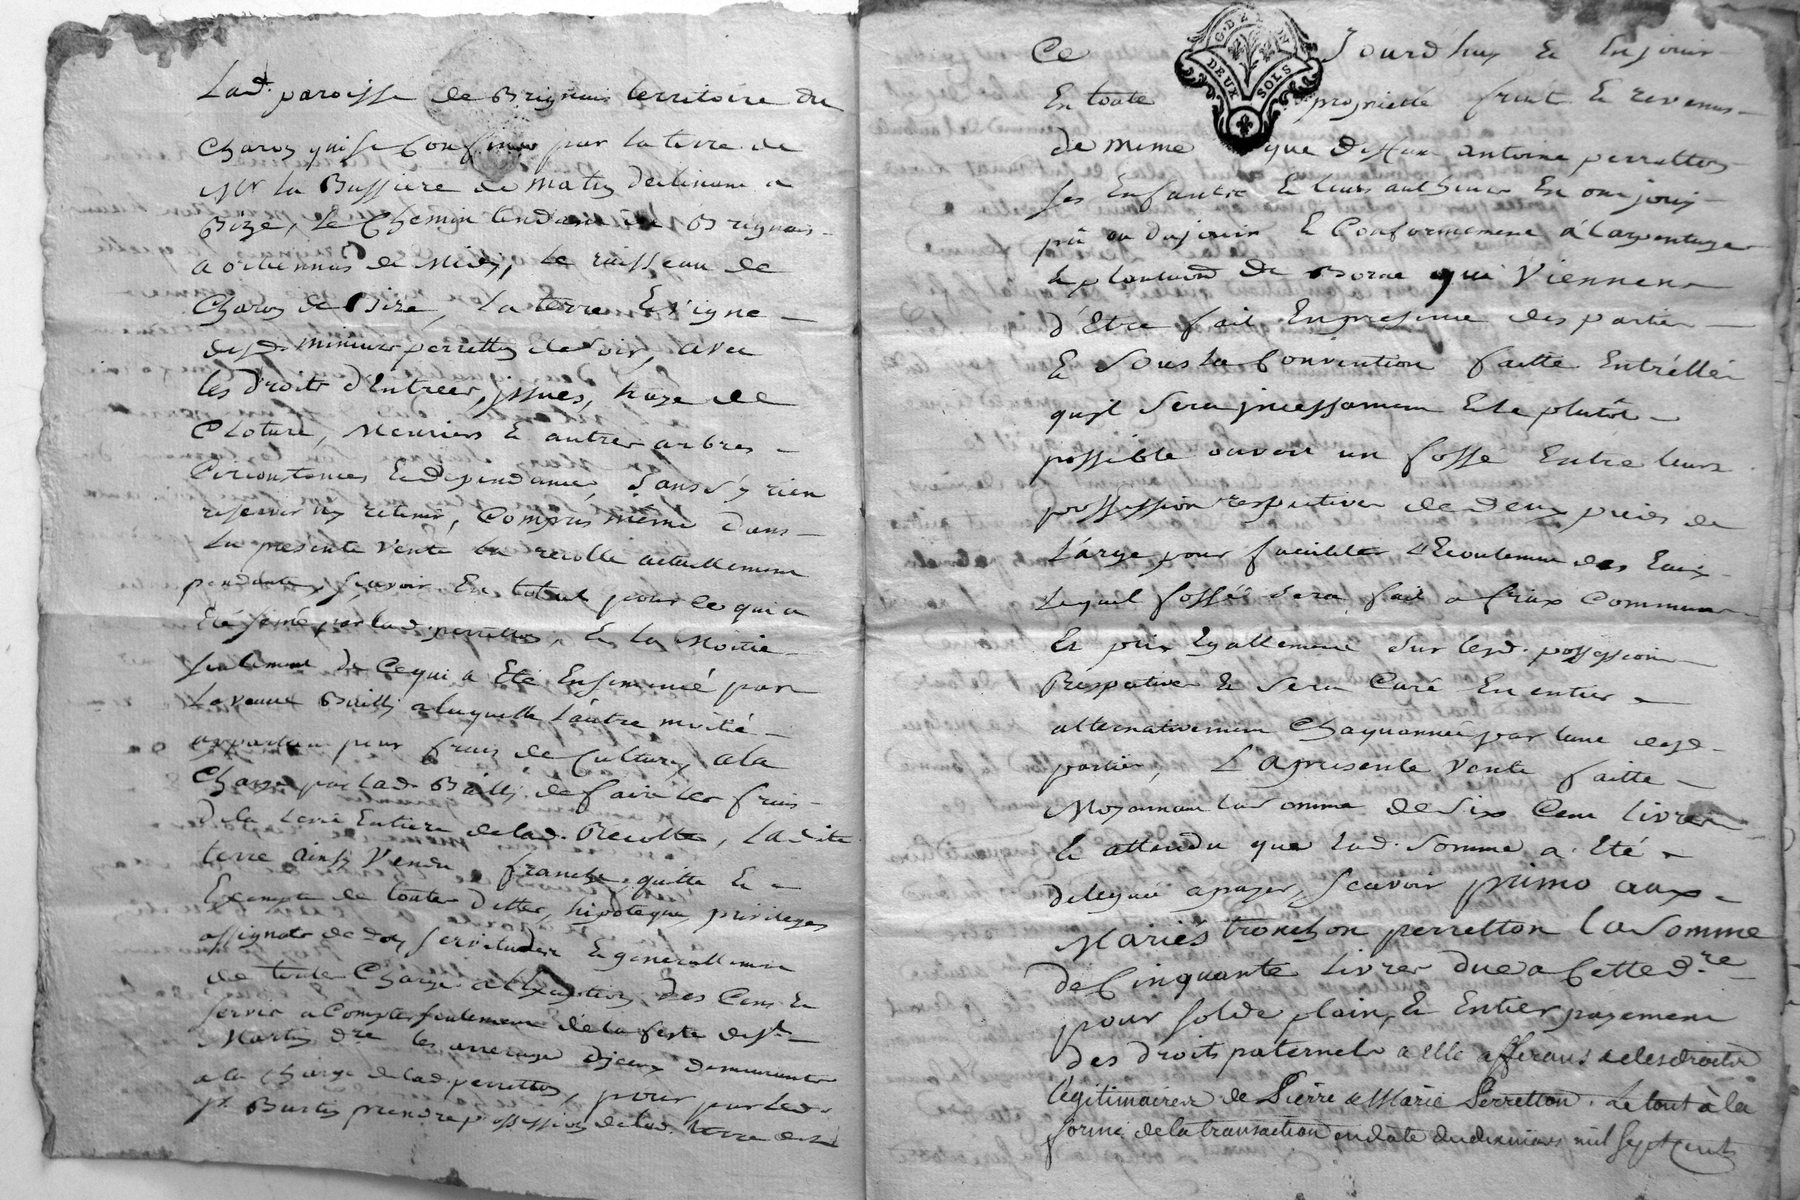 Lad. paroisse de Brignais territoire du
Charoy qui se Confine par la terre de
Mr la Bussiere de matin declinant a
Bize, Le Chemin tendant a Brignais
a orliennas de Midy, Le ruisseau de
Charoy de Bize, La terre Et Vigne
desd. mineurs perretton de soir, avec
les droits d'Entrees, jssues, haye de
Cloture, Meuriers & autres arbres
Circonstances Et dependances, sans s'y rien
reserver ny retenir, Compris même dans
La presente Vente la recolte actuellement
pendante, sçavoir En total pour ce qui a
Eté semé par lad. perretton, Et la Moitié
seulement de Ce qui a Eté Ensemencé par
La veuve Bailly a laquelle L'autre moitié
appartien pour frais de Culture, a la
Charge par lad. Bailly de faire les frais
de la terre Entiere de lad. Recolte, Ladite
terre ainsy Vendu franche, quitte Et
Exempte de toutes dettes, hipoteques, privileges
assignats de dot, servitudes Et generallement
de toute Charge a l'Exception des Cens Et
servis a Compter seulement de la feste de St
Martin dre les arrerages d'jceux demeurants
a la Charge de lad. perretton, pour par led.
Sr. Burtin prendre possession de lad. terre des
Ce Jourd'huy Et En jouir
G. DE LYON
DEUX SOLS
En toute propriété fruit Et revenus
de meme que deffunt antoine perretton
ses Enfants Et leurs autheurs En ont jouy
pû ou du jouir & Conformement á L'arpentage
& plantation de Borne qui Viennent
d'Etre fait En presence des parties
Et sous la Convention faitte Entr'elles
qu'jl sera jncessamment Et le plutôt
possible ouvert un fossé Entre leurs
possession respectives de deux pieds de
Large pour faciliter L'Ecoulement des Eaux
Lequel fossé sera fait a fraix Communs
Et pris Egallement sur lesd. possession
Respective & sera Curé En entier
alternativement Chaqu'année par l'une desd.
parties, La presente Vente faitte
Moyennant la somme de six Cent Livres
Et attendu que lad. somme a Eté
deleguée a payer, scavoir primo aux
Mariés tronchon perretton la somme
de Cinquante Livres due a Cette d.re
pour solde plain, & Entier payement
Des droits paternels a Elle afferants & les droits
légitimaires de Pierre & Marie Perretton. Le tout à la
forme de la transaction en date du dernier mil sept cent